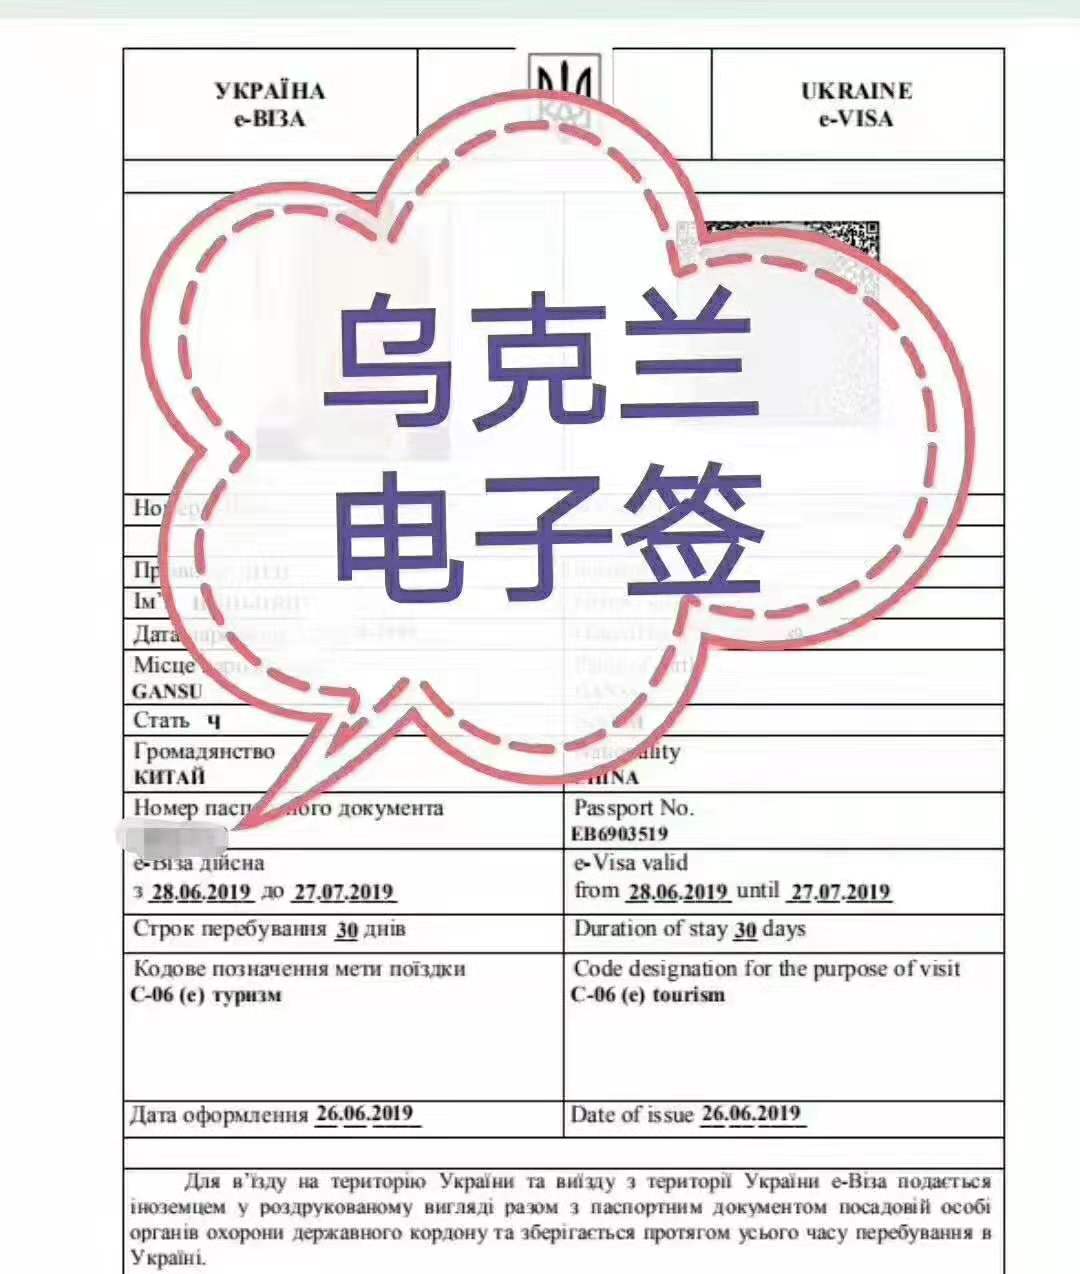 УКРАЇНА
е-ВІЗА
UKRAINE
e-VISA
乌克兰
电子签
Місце
GANSU
Стать Ч
Громадянство
КИТАЙ
CHINA
Номер паспортного документа
Passport No.
EB6903519
е-Віза дійсна
з 28.06.2019 до 27.07.2019
e-Visa valid
from 28.06.2019 until 27.07.2019
Строк перебування 30 днів
Duration of stay 30 days
Кодове позначення мети поїздки
С-06 (е) туризм
Code designation for the purpose of visit
C-06 (e) tourism
Дата оформлення 26.06.2019
Date of issue 26.06.2019
Для в’їзду на територію України та виїзду з території України е-Віза подається
іноземцем у роздрукованому вигляді разом з паспортним документом посадовій особі
органів охорони державного кордону та зберігається протягом усього часу перебування в
Україні.